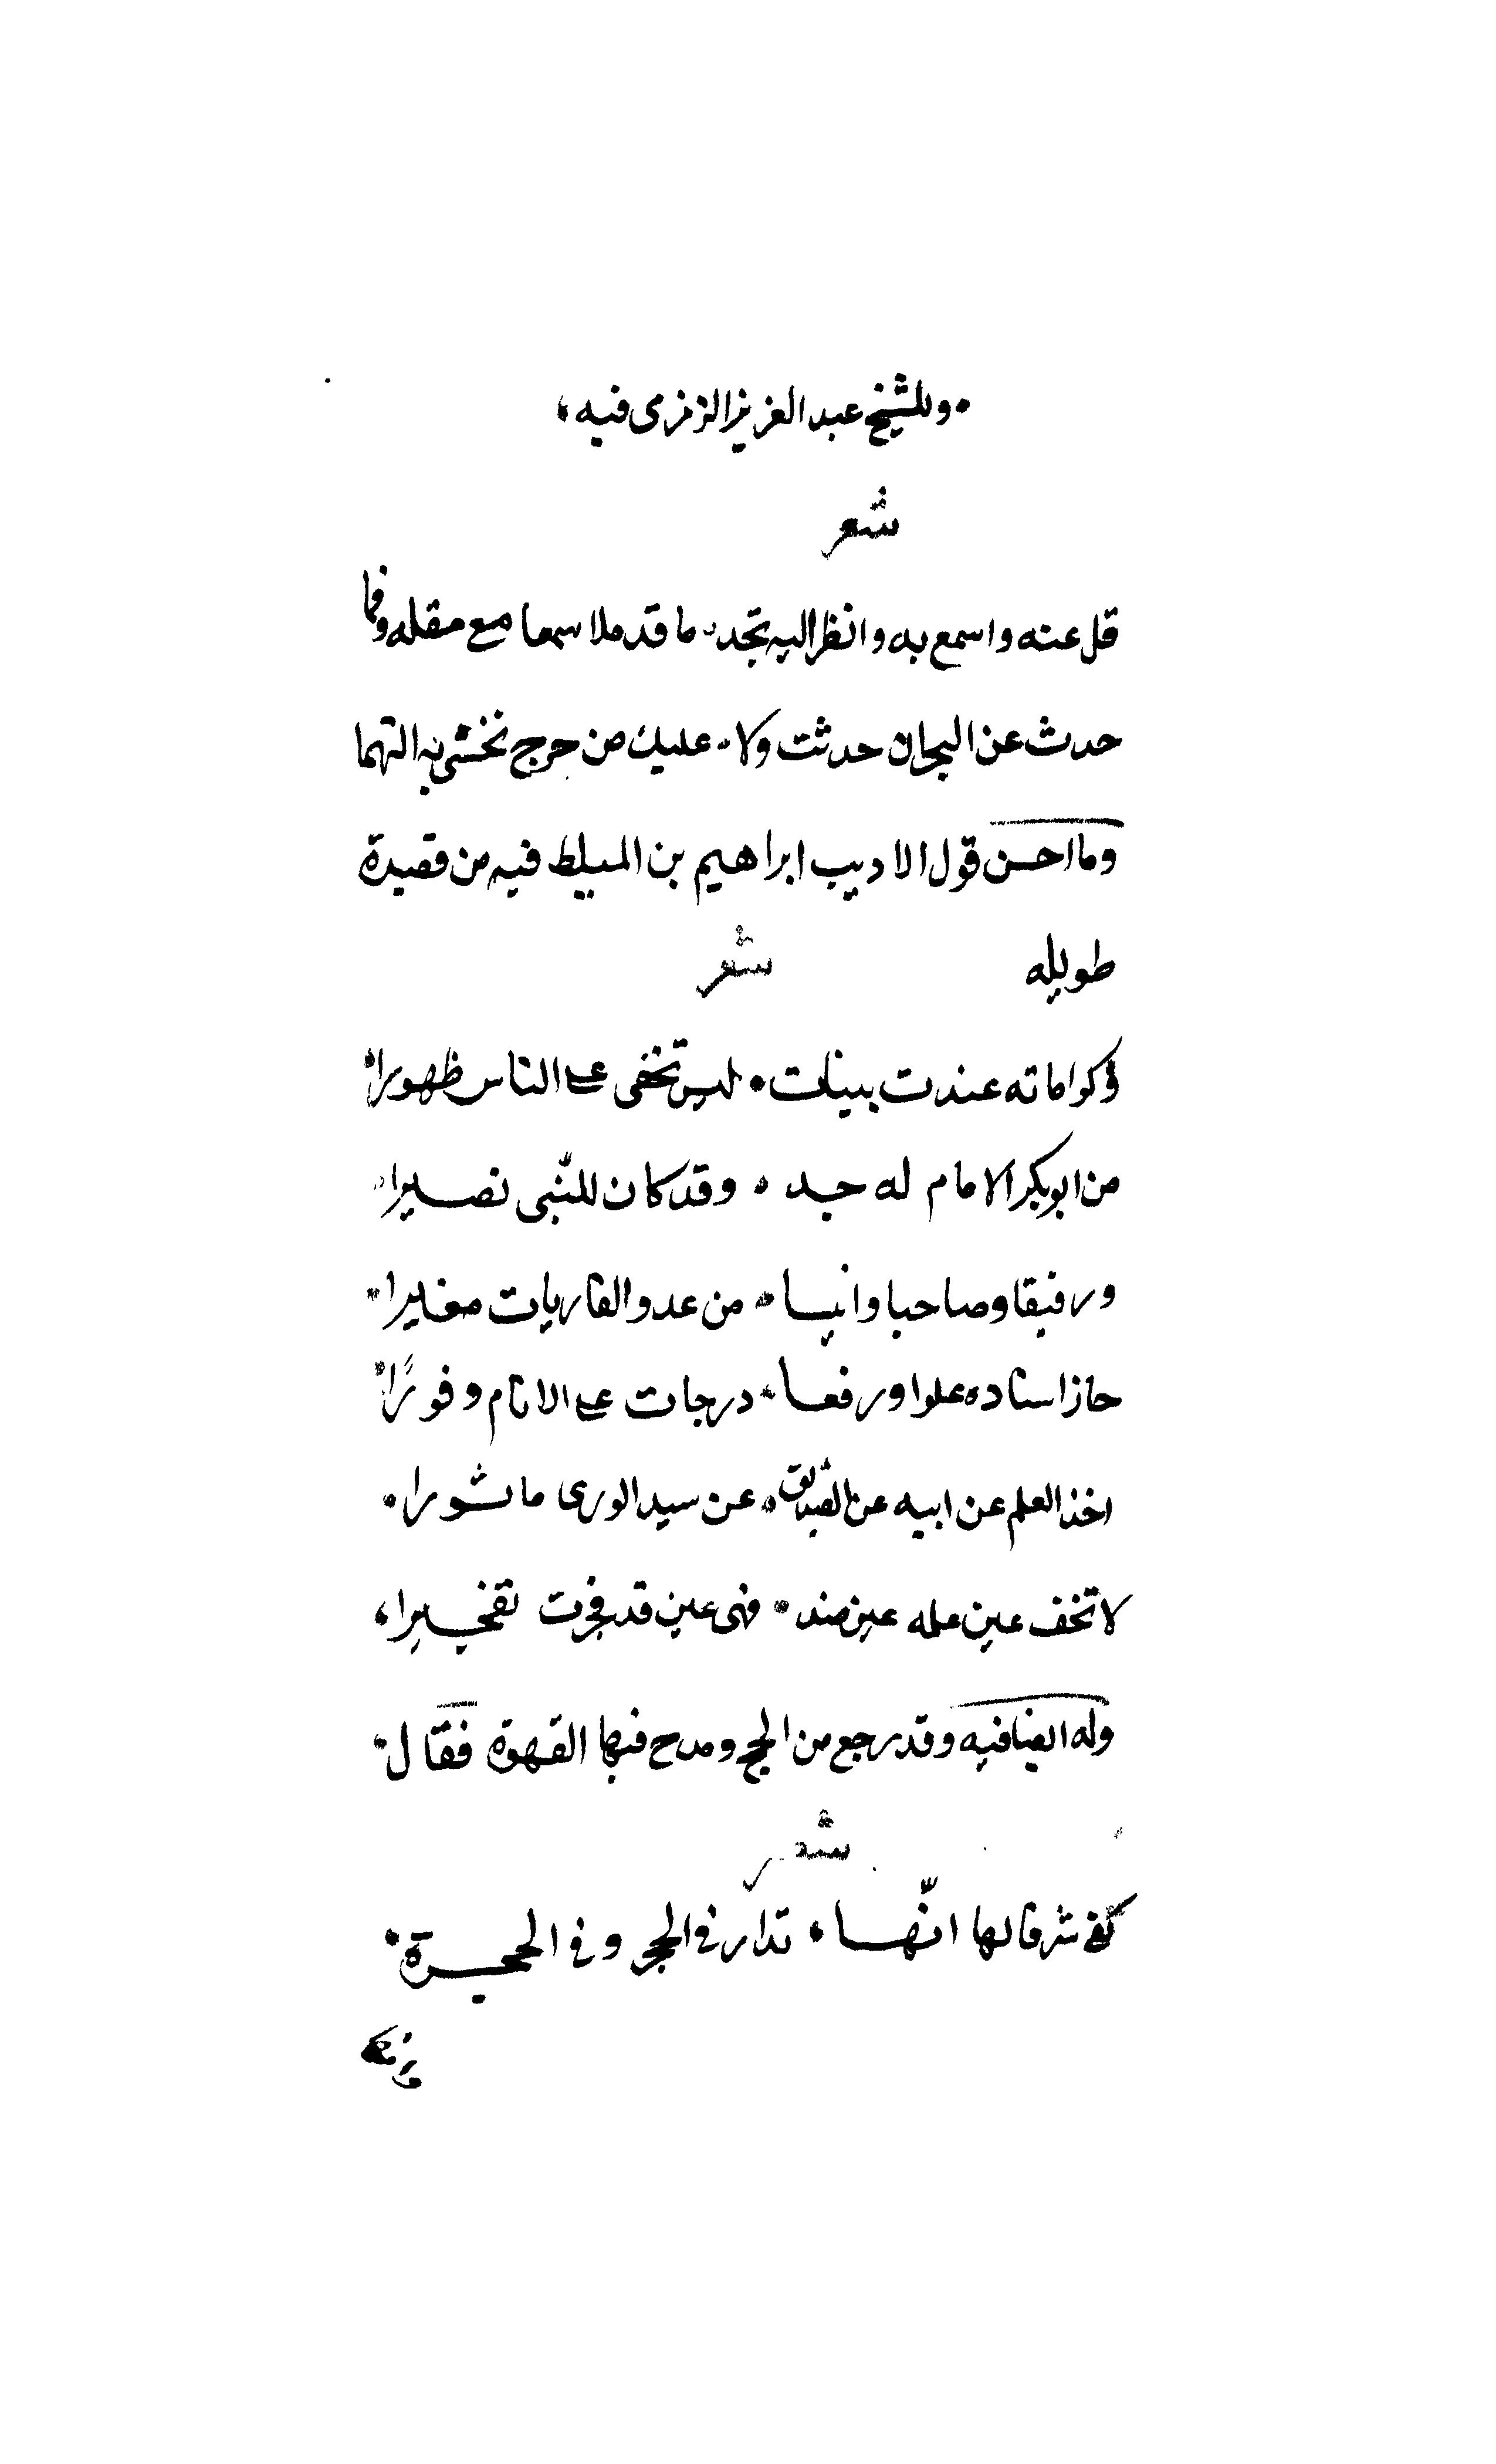 وللشيخ عبد العزيز الزمزمى فيه
شعر
قل عنه واسمع به وانظر اليه تجد ما قد ملا سمعا مع مقله وفما
حدث عن البحران حدثت ولا عليك من حرج تخشى به التهما
وما احسن قول الاديب ابراهيم بن المبلط فيه من قصيدة
طويله
شعر
وكراماته عندت بينات ليس تخفى على الناس ظهورا
من ابو بكر الامام له جد وقد كان للنّبى نصيرا
ورفيقا وصاحبا وانيسا من عدو القاريات مغيرا
حاز استاده علوا ورفعا درجات على الانام وفورًا
اخذ العلم عن ابيه عن الصديق عن سيد الورى ماثورا
لا تخف عين عله عين ضد فهى عين قد فجرت تفجيرا
وله ايضا فيه وقد رجع من الحج ومدح فيها القهوة فقال
شعر
كفى شرفا لها انّها تدار فى الحجر وفى الحجرة